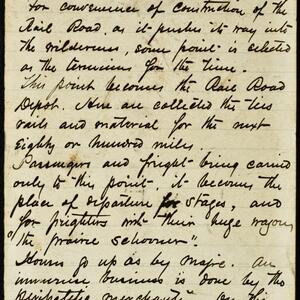 For convenience of construction of the
Rail Road, as it pushes its way into
the wilderness, some point is selected
as the terminus for the time.
This point becomes the Rail Road
Depot. Here are collected the ties
rails and material for the next
Eighty or hundred miles
Passengers and freight being carried
only to "this point", it becomes the
place of departure for stages, and
for freighters with their huge wagons
"the prairie schooner".
Houses go up as by magic. An
immense business is done by the
merchants